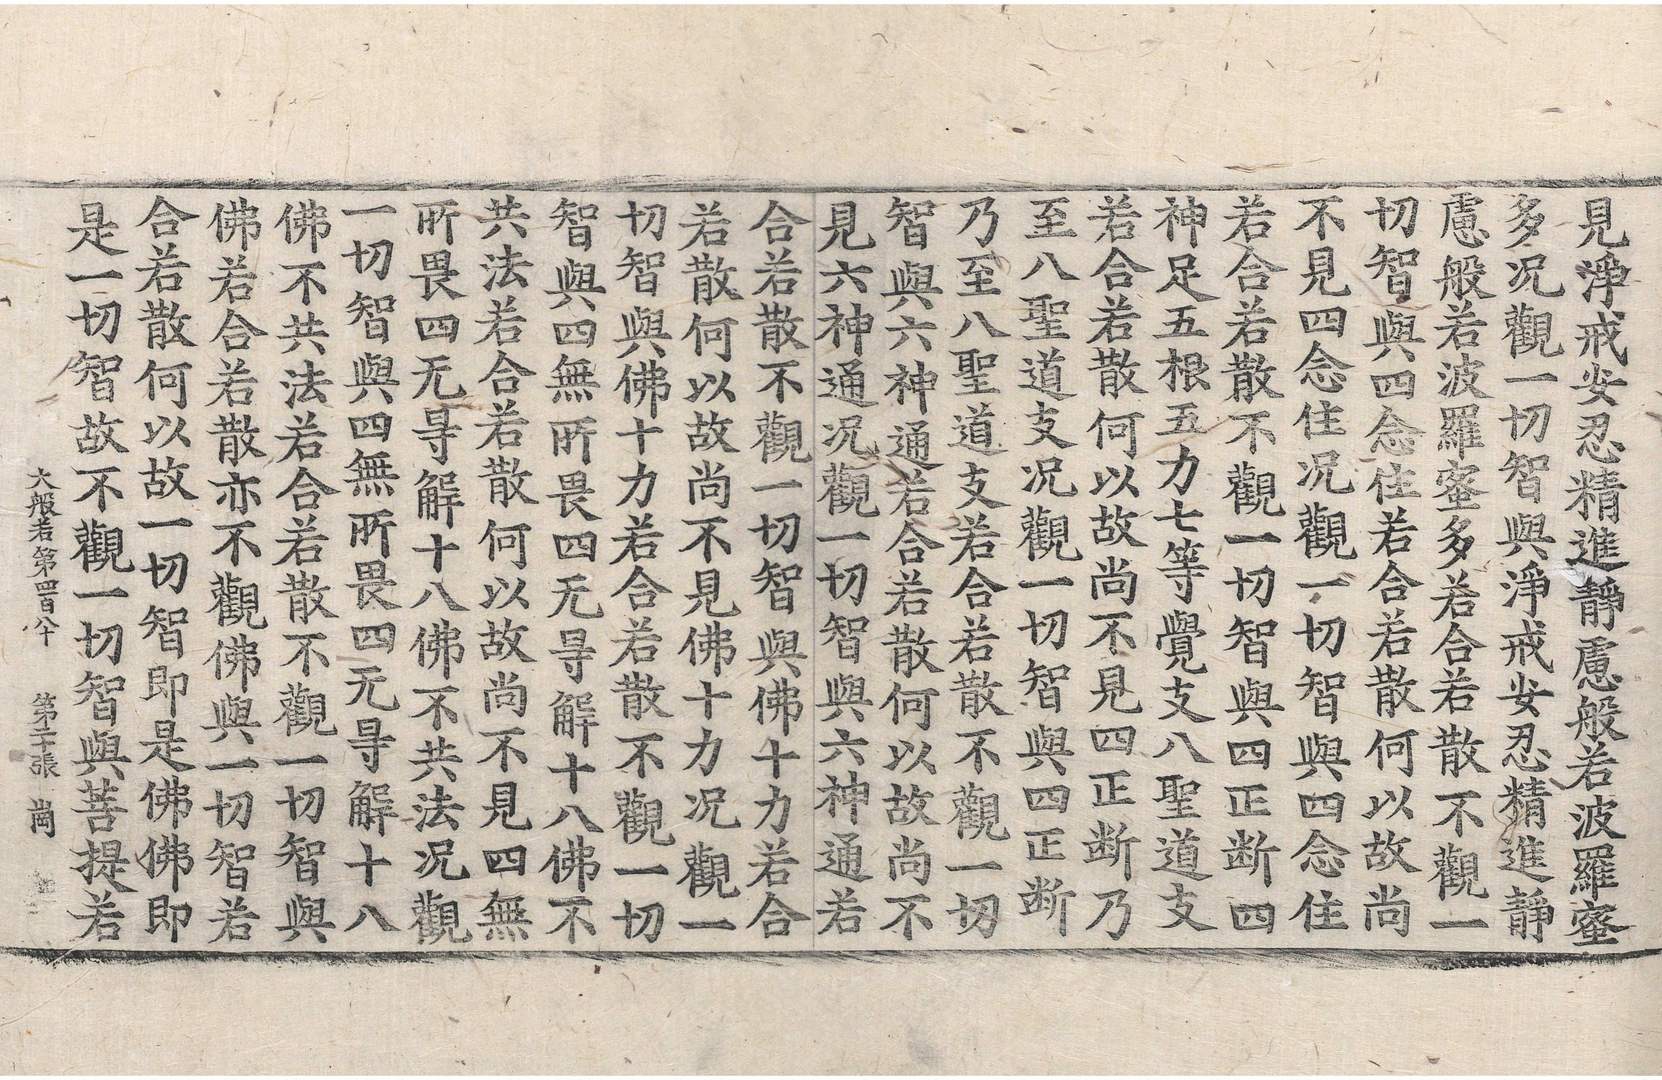 見淨戒安忍精進靜慮般若波羅蜜
多况觀一切智與淨戒安忍精進靜
慮般若波羅蜜多若合若散不觀一
切智與四念住若合若散何以故尚
不見四念住况觀一切智與四念住
若合若散不觀一切智與四正断四
神足五根五力七等覺支八聖道支
若合若散何以故尚不見四正断乃
至八聖道支况觀一切智與四正断
乃至八聖道支若合若散不觀一切
智與六神通若合若散何以故尚不
見六神通况觀一切智與六神通若
合若散不觀一切智與佛十力若合
若散何以故尚不見佛十力况觀一
切智與佛十力若合若散不觀一切
智與四無所畏四无㝵解十八佛不
共法若合若散何以故尚不見四無
所畏四无㝵解十八佛不共法况觀
一切智與四無所畏四无㝵解十八
佛不共法若合若散不觀一切智與
佛若合若散亦不觀佛與一切智若
合若散何以故一切智即是佛佛即
是一切智故不觀一切智與菩提若
大般若第四百八十 第二十張 崗